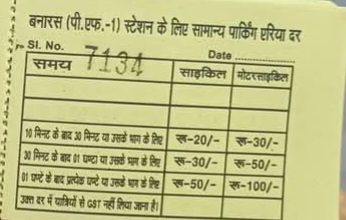 बनारस (पी.एफ.-1) स्टेशन के लिए सामान्य पार्किंग एरिया दर
Sl. No. 7134 Date ............
समय साइकिल मोटरसाइकिल
10 मिनट के बाद 30 मिनट या उसके भाग के लिए रू-20/- रू-30/-
30 मिनट के बाद 01 घण्टा या उसके भाग के लिए रू-30/- रू-50/-
01 घण्टे के बाद प्रत्येक घण्टे या उसके भाग के लिए रू-50/- रू-100/-
उक्त दर में यात्रियों से GST नहीं लिया जाना है।